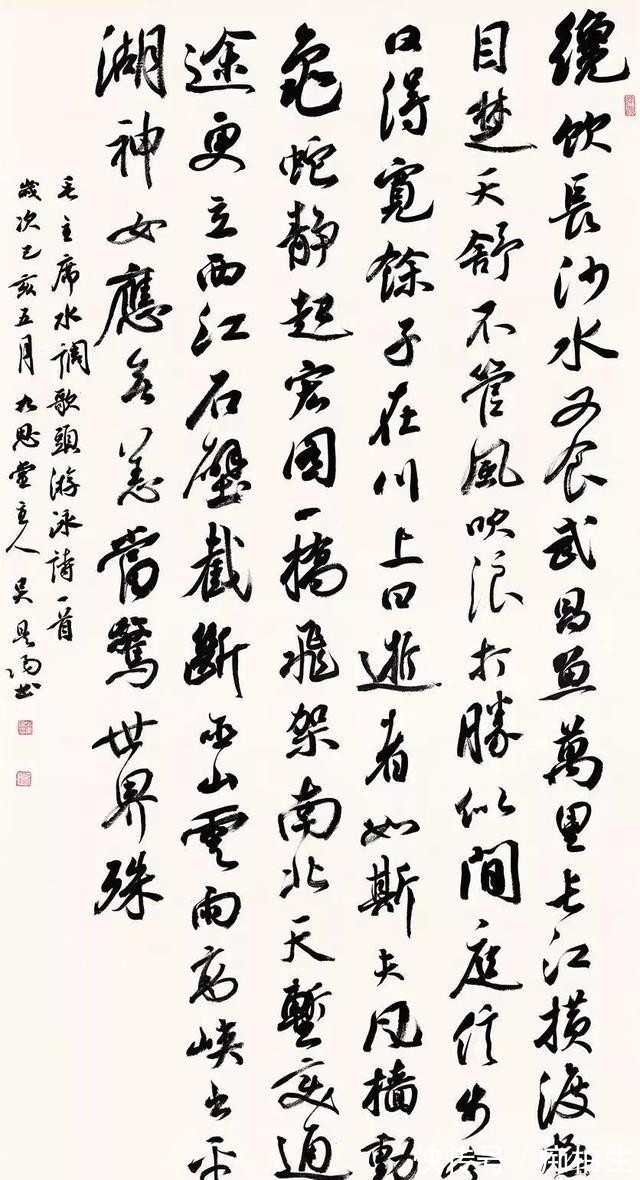 纔飲長沙水又食武昌魚萬里長江横渡極
目楚天舒不管風吹浪打勝似間庭信步今
日得寬餘子在川上曰逝者如斯夫風檣動
龜蛇静起宏圖一橋飛架南北天塹变通
途更立西江石壁截斷巫山雲雨高峽出平
湖神女應無恙當驚世界殊
毛主席水調歌頭游泳詩一首
歲次己亥五月 九思堂主人 吳
快传号 /